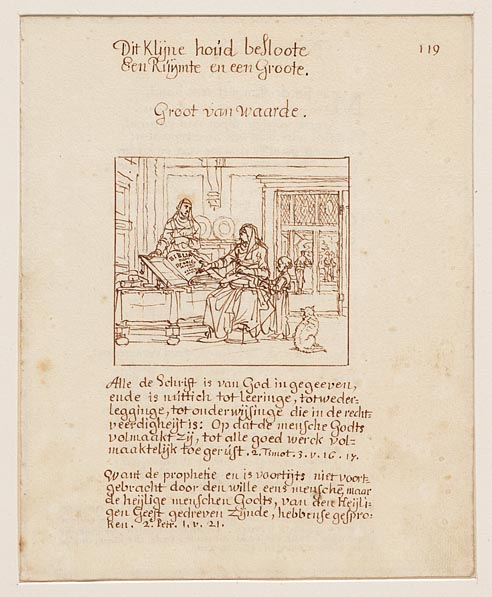 Dit Klijne hoúd besloote
Een Rúÿmte en een Groote.
119
Groot van Waarde.
BIBLIA
Alle de Schrift is van God ingegeeven,
ende is nuttich tot leeringe, totweder-
legginge, tot onderwijsinge die in de recht-
veerdigheijt is: Op dat de mensche Godts
volmaakt zij, tot alle goed werck vol-
maaktelijk toegerúst. 2. Timot. 3. v. 16. 17.
Want de prophetie en is voortijts niet voort-
gebracht door den wille eens menschē, maar
de heijlige menschen Godts, van den Heijli-
gen Geest gedreven zijnde, hebbense gespro-
ken. 2 Petr. 1. v. 21.